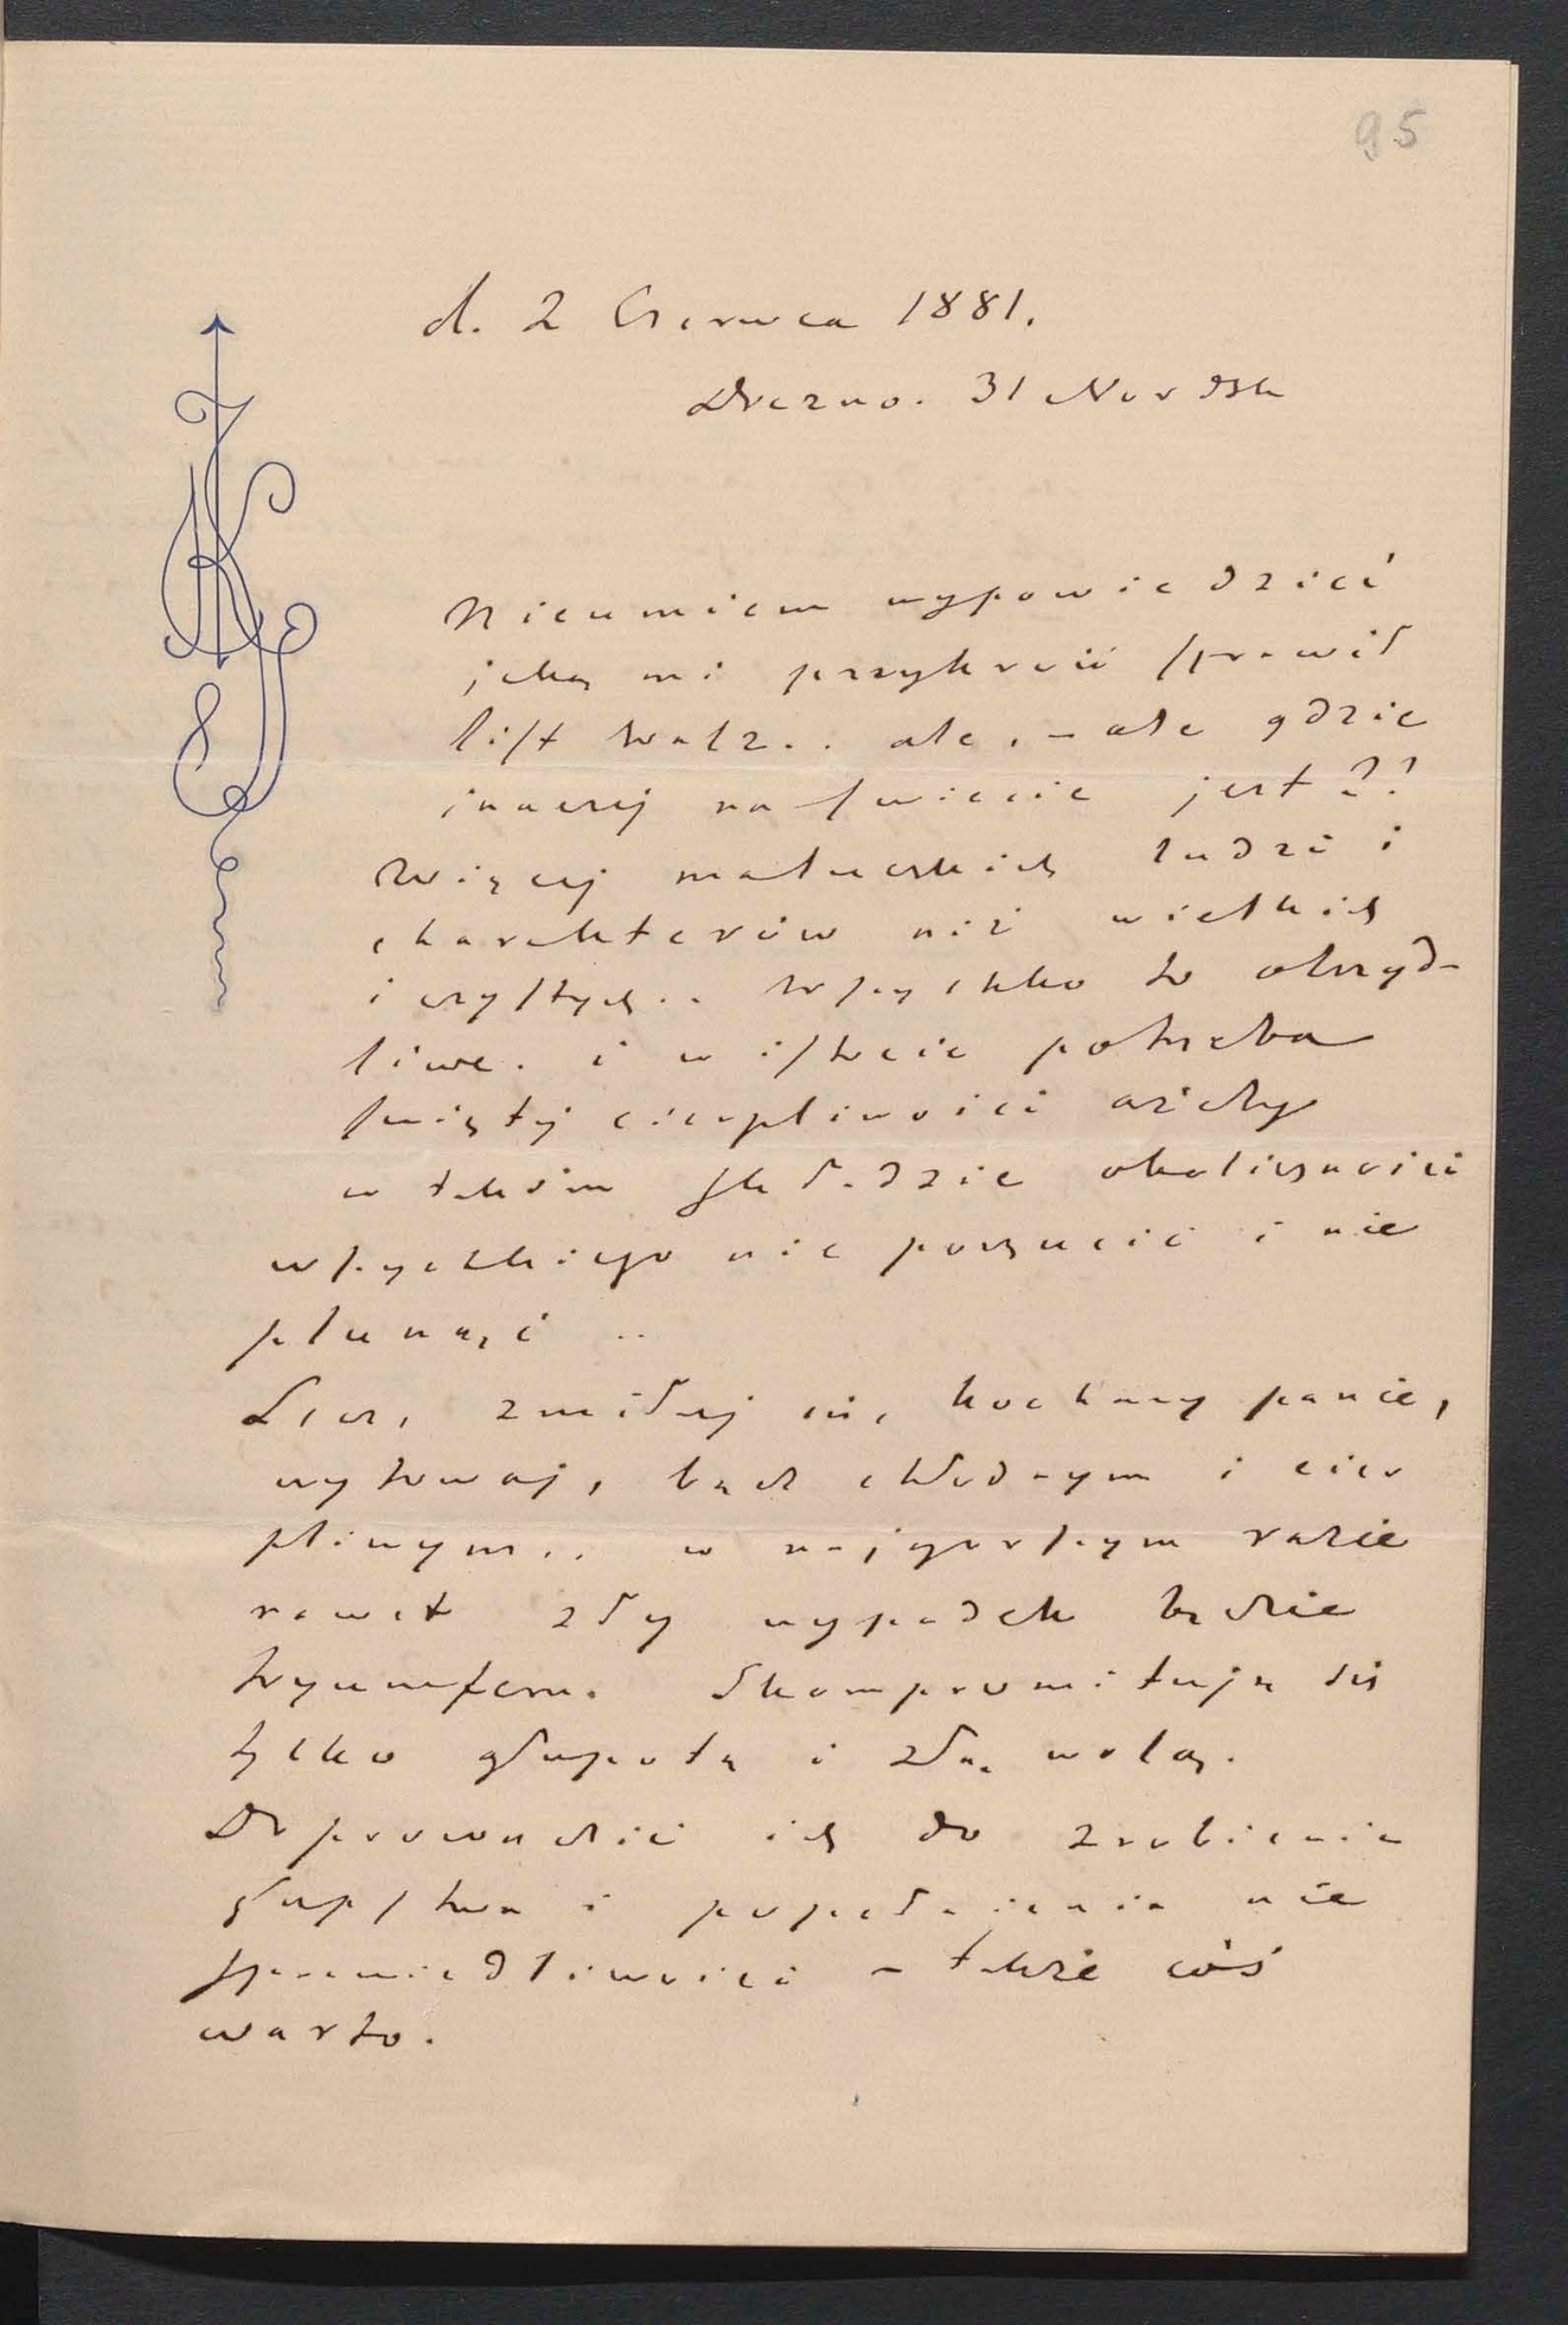 95
d. 2 Czerwca 1881.
Drezno. 31 Nordstr
Nieumiem wypowiedzieć
jaką mi przykrość sprawił
list twój.. ale, – ale gdzie
inaczej na świecie jest??
Więcej maluczkich ludzi i
charakterów niż wielkich
i czystych.. Wszystko to obrzyd-
liwe. i w istocie potrzeba
świętej cierpliwości ażeby
w takim składzie okoliczności
wszystkiego nie porzucić i nie
plunąć ..
Lecz, zmiłuj się, kochany panie,
wytrwaj, bądź chłodnym i cier
pliwym.. w najgorszym razie
nawet zły wypadek będzie
tryumfem. Skompromitują się
tylko głupotą i złą wolą.
Doprowadzić ich do zrobienia
głupstwa i popełnienia nie
sprawiedliwości – także coś
warto.